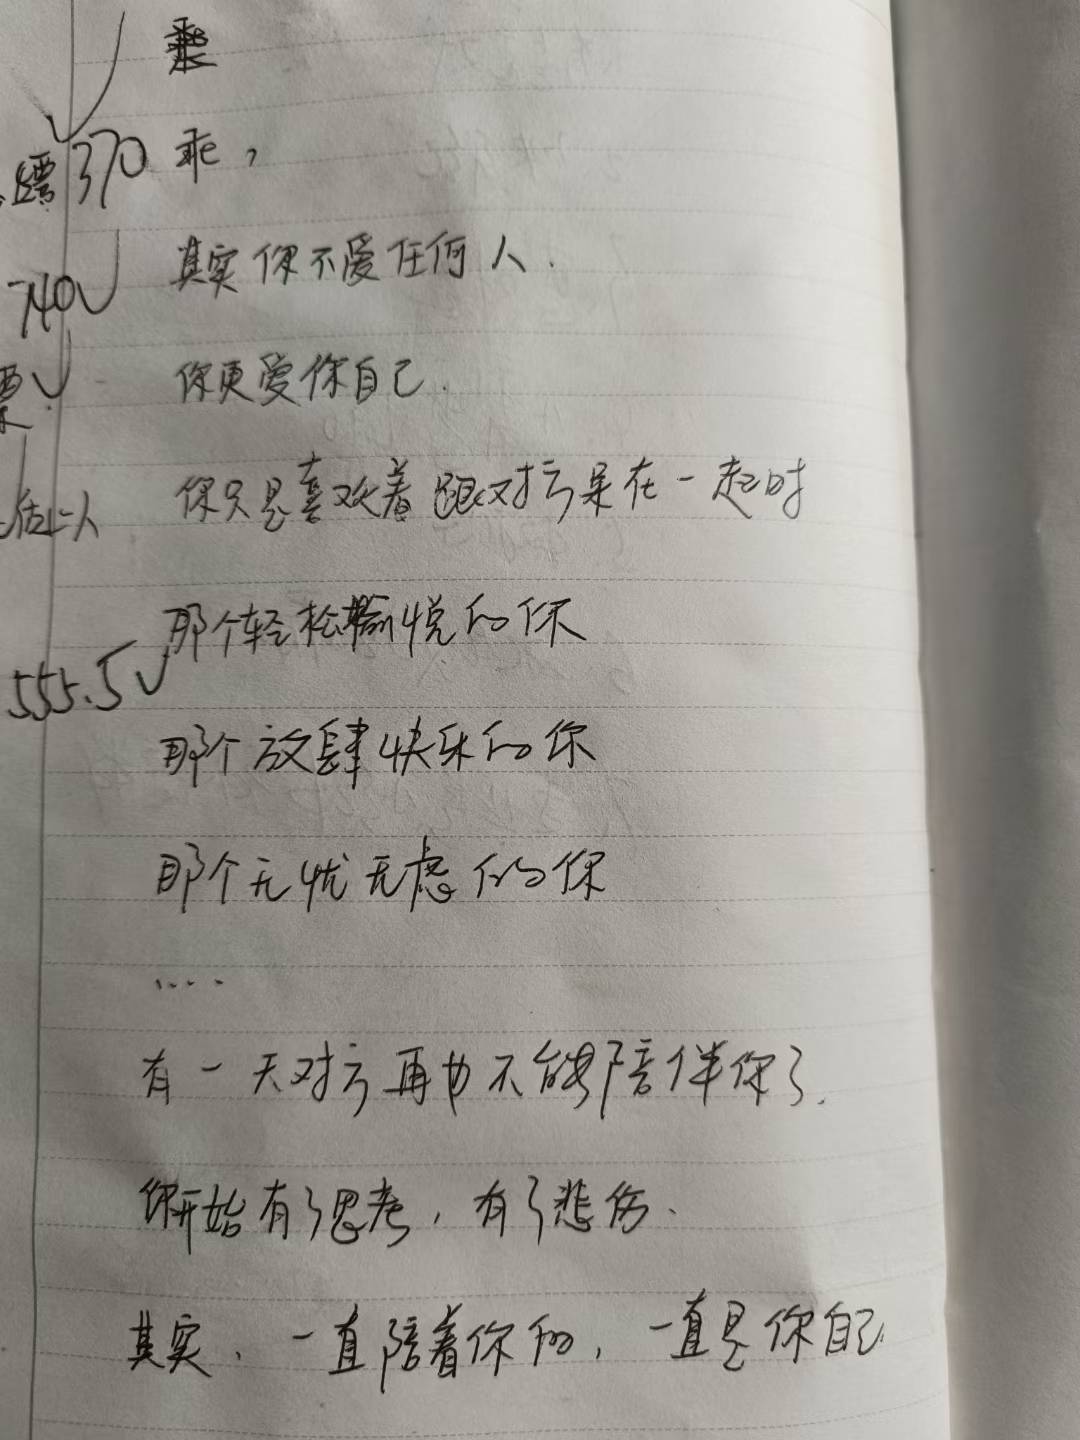 乖，
370
其实你不爱任何人.
740
你更爱你自己.
票
你只是喜欢着跟对方呆在一起时
那个轻松愉悦的你
555.5
那个放肆快乐的你
那个无忧无虑的你
....
有一天对方再也不能陪伴你了.
你开始有了思考，有了悲伤.
其实，一直陪着你的，一直是你自己.